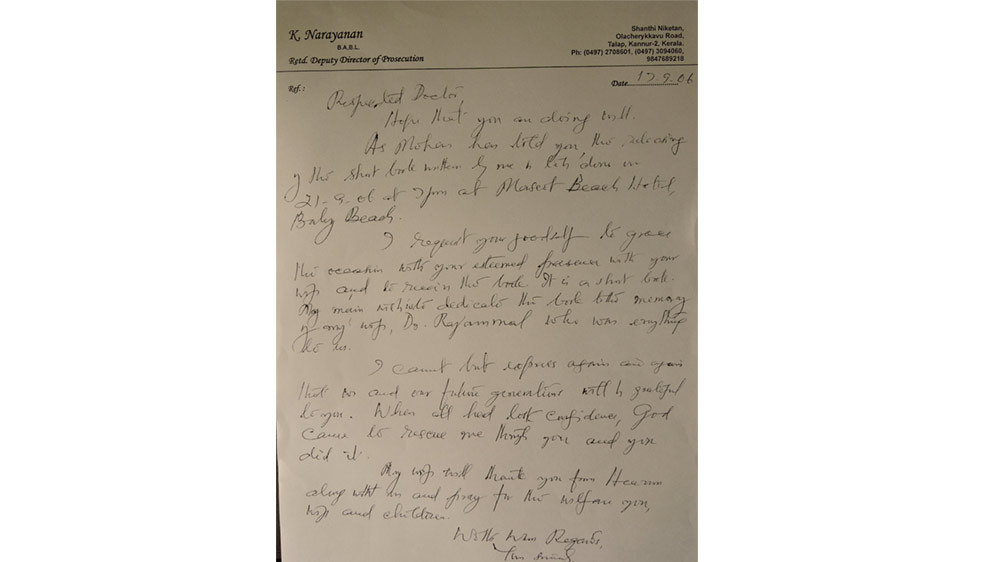 K. Narayanan
B.A,B.L.
Retd. Deputy Director of Prosecution
Shanthi Niketan,
Olacherykkavu Road,
Talap, Kannur-2, Kerala.
Ph: (0497) 2708601, (0497) 3094060,
9847689218
Ref.:
Date 17.9.06
Respected Doctor,
Hope that you are doing well.
As Mohan has told you the releasing
of the short book written by me is to be done on
21-9-06 at 7pm at Mascot Beach Hotel,
Baby Beach.
I request your goodself to grace
the occasion with your esteemed presence with your
wife and to receive the book. It is a short book.
My main wish is to dedicate the book to the memory
of my wife, Dr. Rajammal who was everything
to us.
I cannot but express again and again
that we and our future generations will be grateful
to you. When all had lost confidence, God
came to rescue me through you and you
did it.
My wife will thank you from Heaven
along with us and pray for the welfare you,
wife and children.
With Warm Regards,